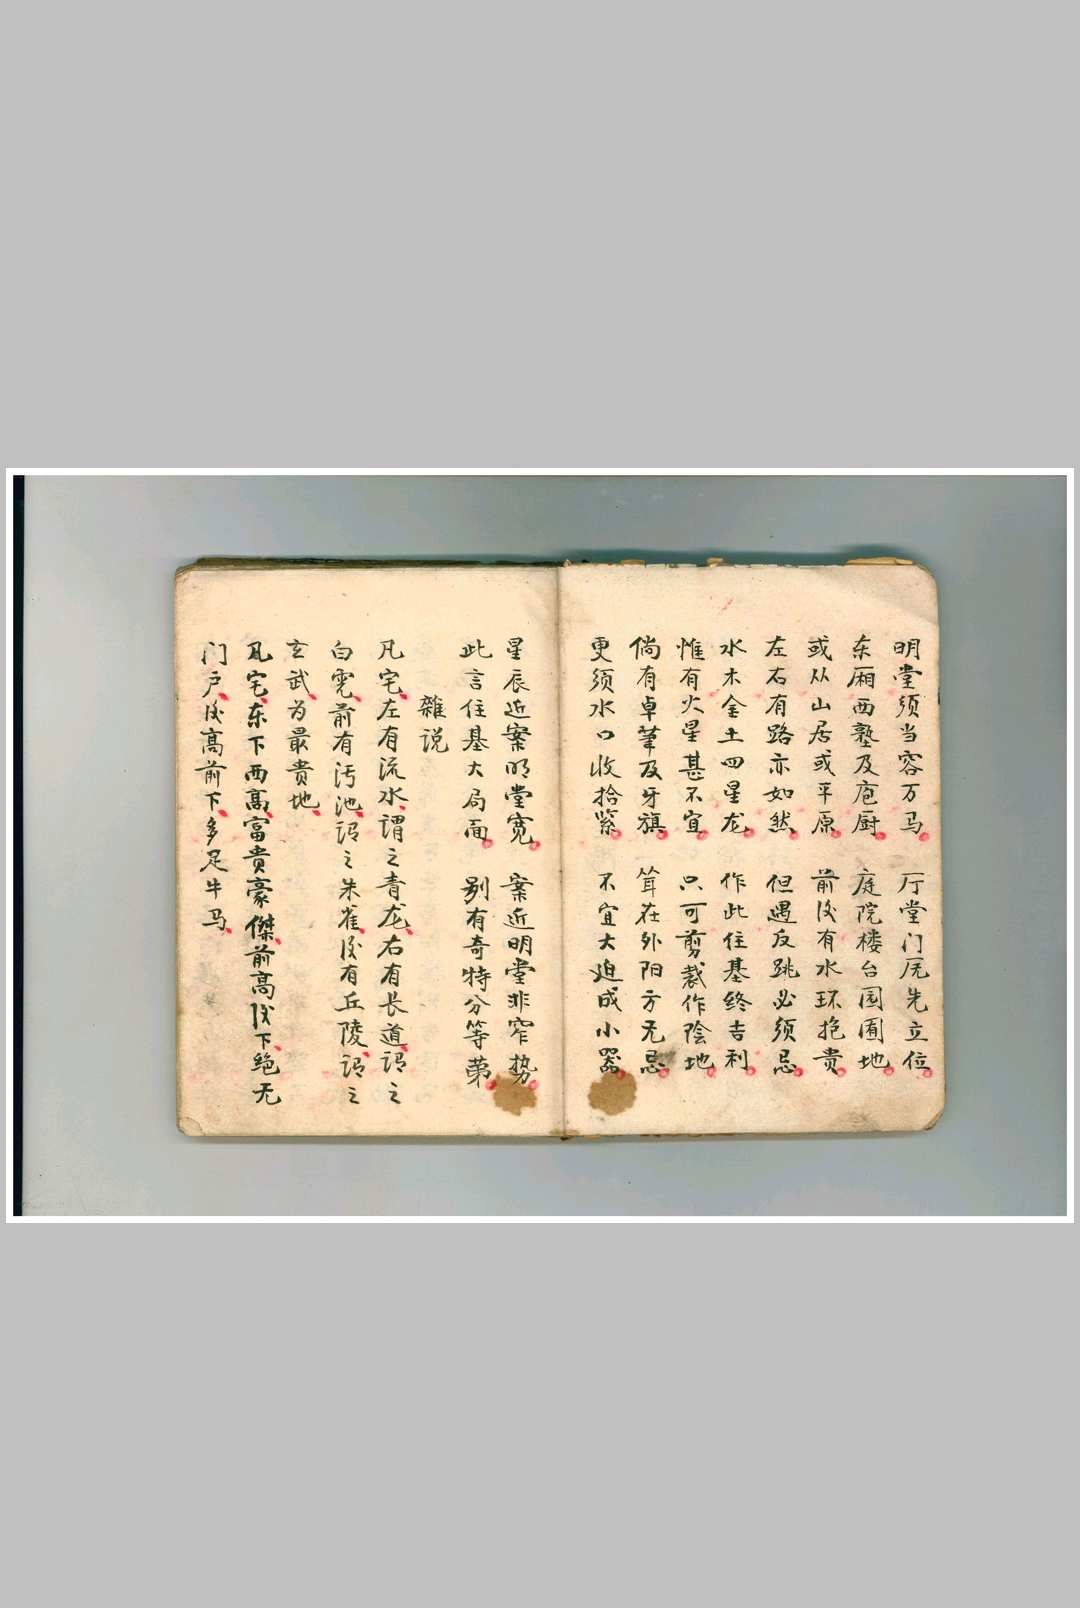 明堂须当容万马 厅堂门庑先立位
东厢西塾及庖厨 庭院楼台园圃地
或从山居或平原 前后有水环抱贵
左右有路亦如然 但遇反跳必须忌
水木金土四星龙 作此住基终吉利
惟有火星甚不宜 只可剪裁作陰地
倘有卓筆及牙旗 耸在外阳方无忌
更须水口收拾緊 不宜大迫成小器
星辰近案明堂宽 案近明堂非窄势
此言住基大局面 别有奇特分等第
雜说
凡宅、左有流水、谓之青龙、右有长道、谓之
白虎、前有污池、谓之朱雀、后有丘陵、谓之
玄武、为最贵地、
凡宅、东下西高、富贵豪傑、前高后下、绝无
门户、后高前下、多足牛马、